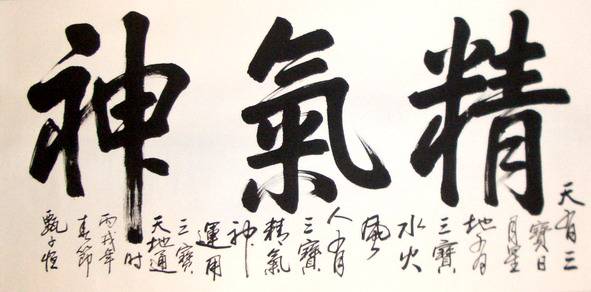 精氣神
天有三
寶日
月星
地有
三寶
水火
風
人有
三寶
精氣
神
運用
三寶
天地通
时
丙戌年
春節
甄子恒